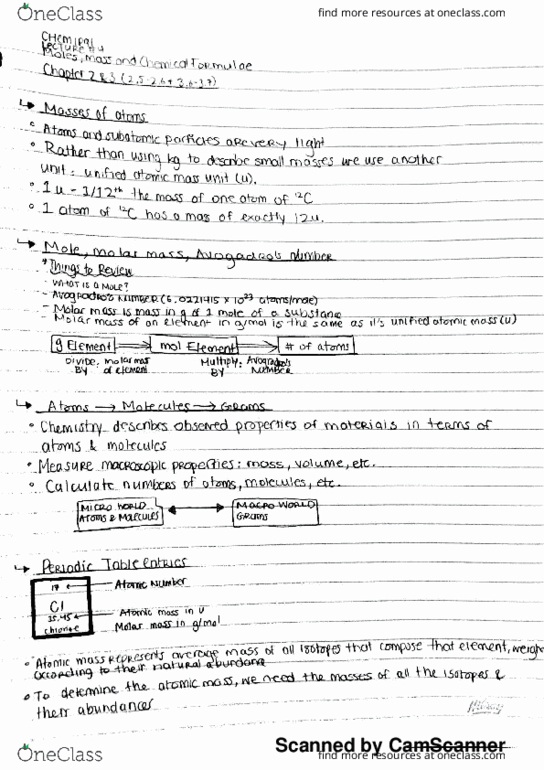 OneClass
find more resources at oneclass.com
CHEM
LECTURE #4
Moles, mass and Chemical Formulae
Chapter 2 & 3 (2.5-2.6 + 3.6-3.7)
↳ Masses of atoms
° Atoms and subatomic particles are very light
° Rather than using kg to describe small masses we use another
unit: unified atomic mass unit (u).
° 1 u - 1/12th the mass of one atom of ¹²C
° 1 atom of ¹²C has a mass of exactly 12u.
↳ Mole, molar mass, Avogadro's number
* Things to Review
- WHAT IS A MOLE?
- Avogradro's NUMBER (6.0221415 x 10²³ atoms/mole)
- Molar mass is mass in g of 1 mole of a substance
Molar mass of an element in g/mol is the same as it's unified atomic mass (u)
g Element → mol Element → # of atoms
Divide: molar mass Multiply: Avogadro's
BY of element BY NUMBER
↳ Atoms → Molecules → Grams
° Chemistry describes observed properties of materials in terms of
atoms & molecules
° Measure macroscopic properties: mass, volume, etc.
° Calculate numbers of atoms, molecules, etc.
MICRO WORLD ↔ MACRO WORLD
ATOMS & MOLECULES GRAMS
↳ Periodic Table Entries
17 ← Atomic Number
Cl
35.45 ← Atomic mass in u
Molar mass in g/mol
° Atomic mass represents average mass of all isotopes that compose that element, weighe
according to their natural abundance
° To determine the atomic mass, we need the masses of all the isotopes &
their abundances
Scanned by CamScanner
OneClass
find more resources at oneclass.com